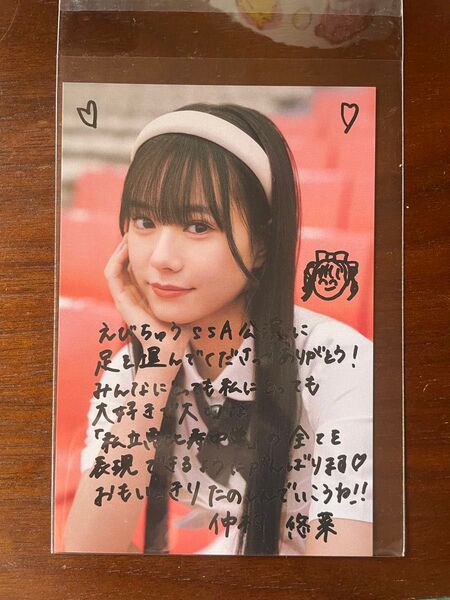 えびちゅうSSA公演に
足を運んでくださりありがとう!
みんなにとっても私にとっても
大好きで大切な
「私立恵比寿中学」の全てを
表現できるようにがんばります♡
おもいっきりたのしんでいこうね!!
仲村 悠菜